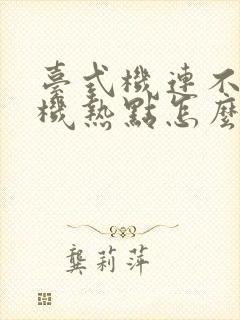 臺式機連不
機熱點怎麼
龔莉萍